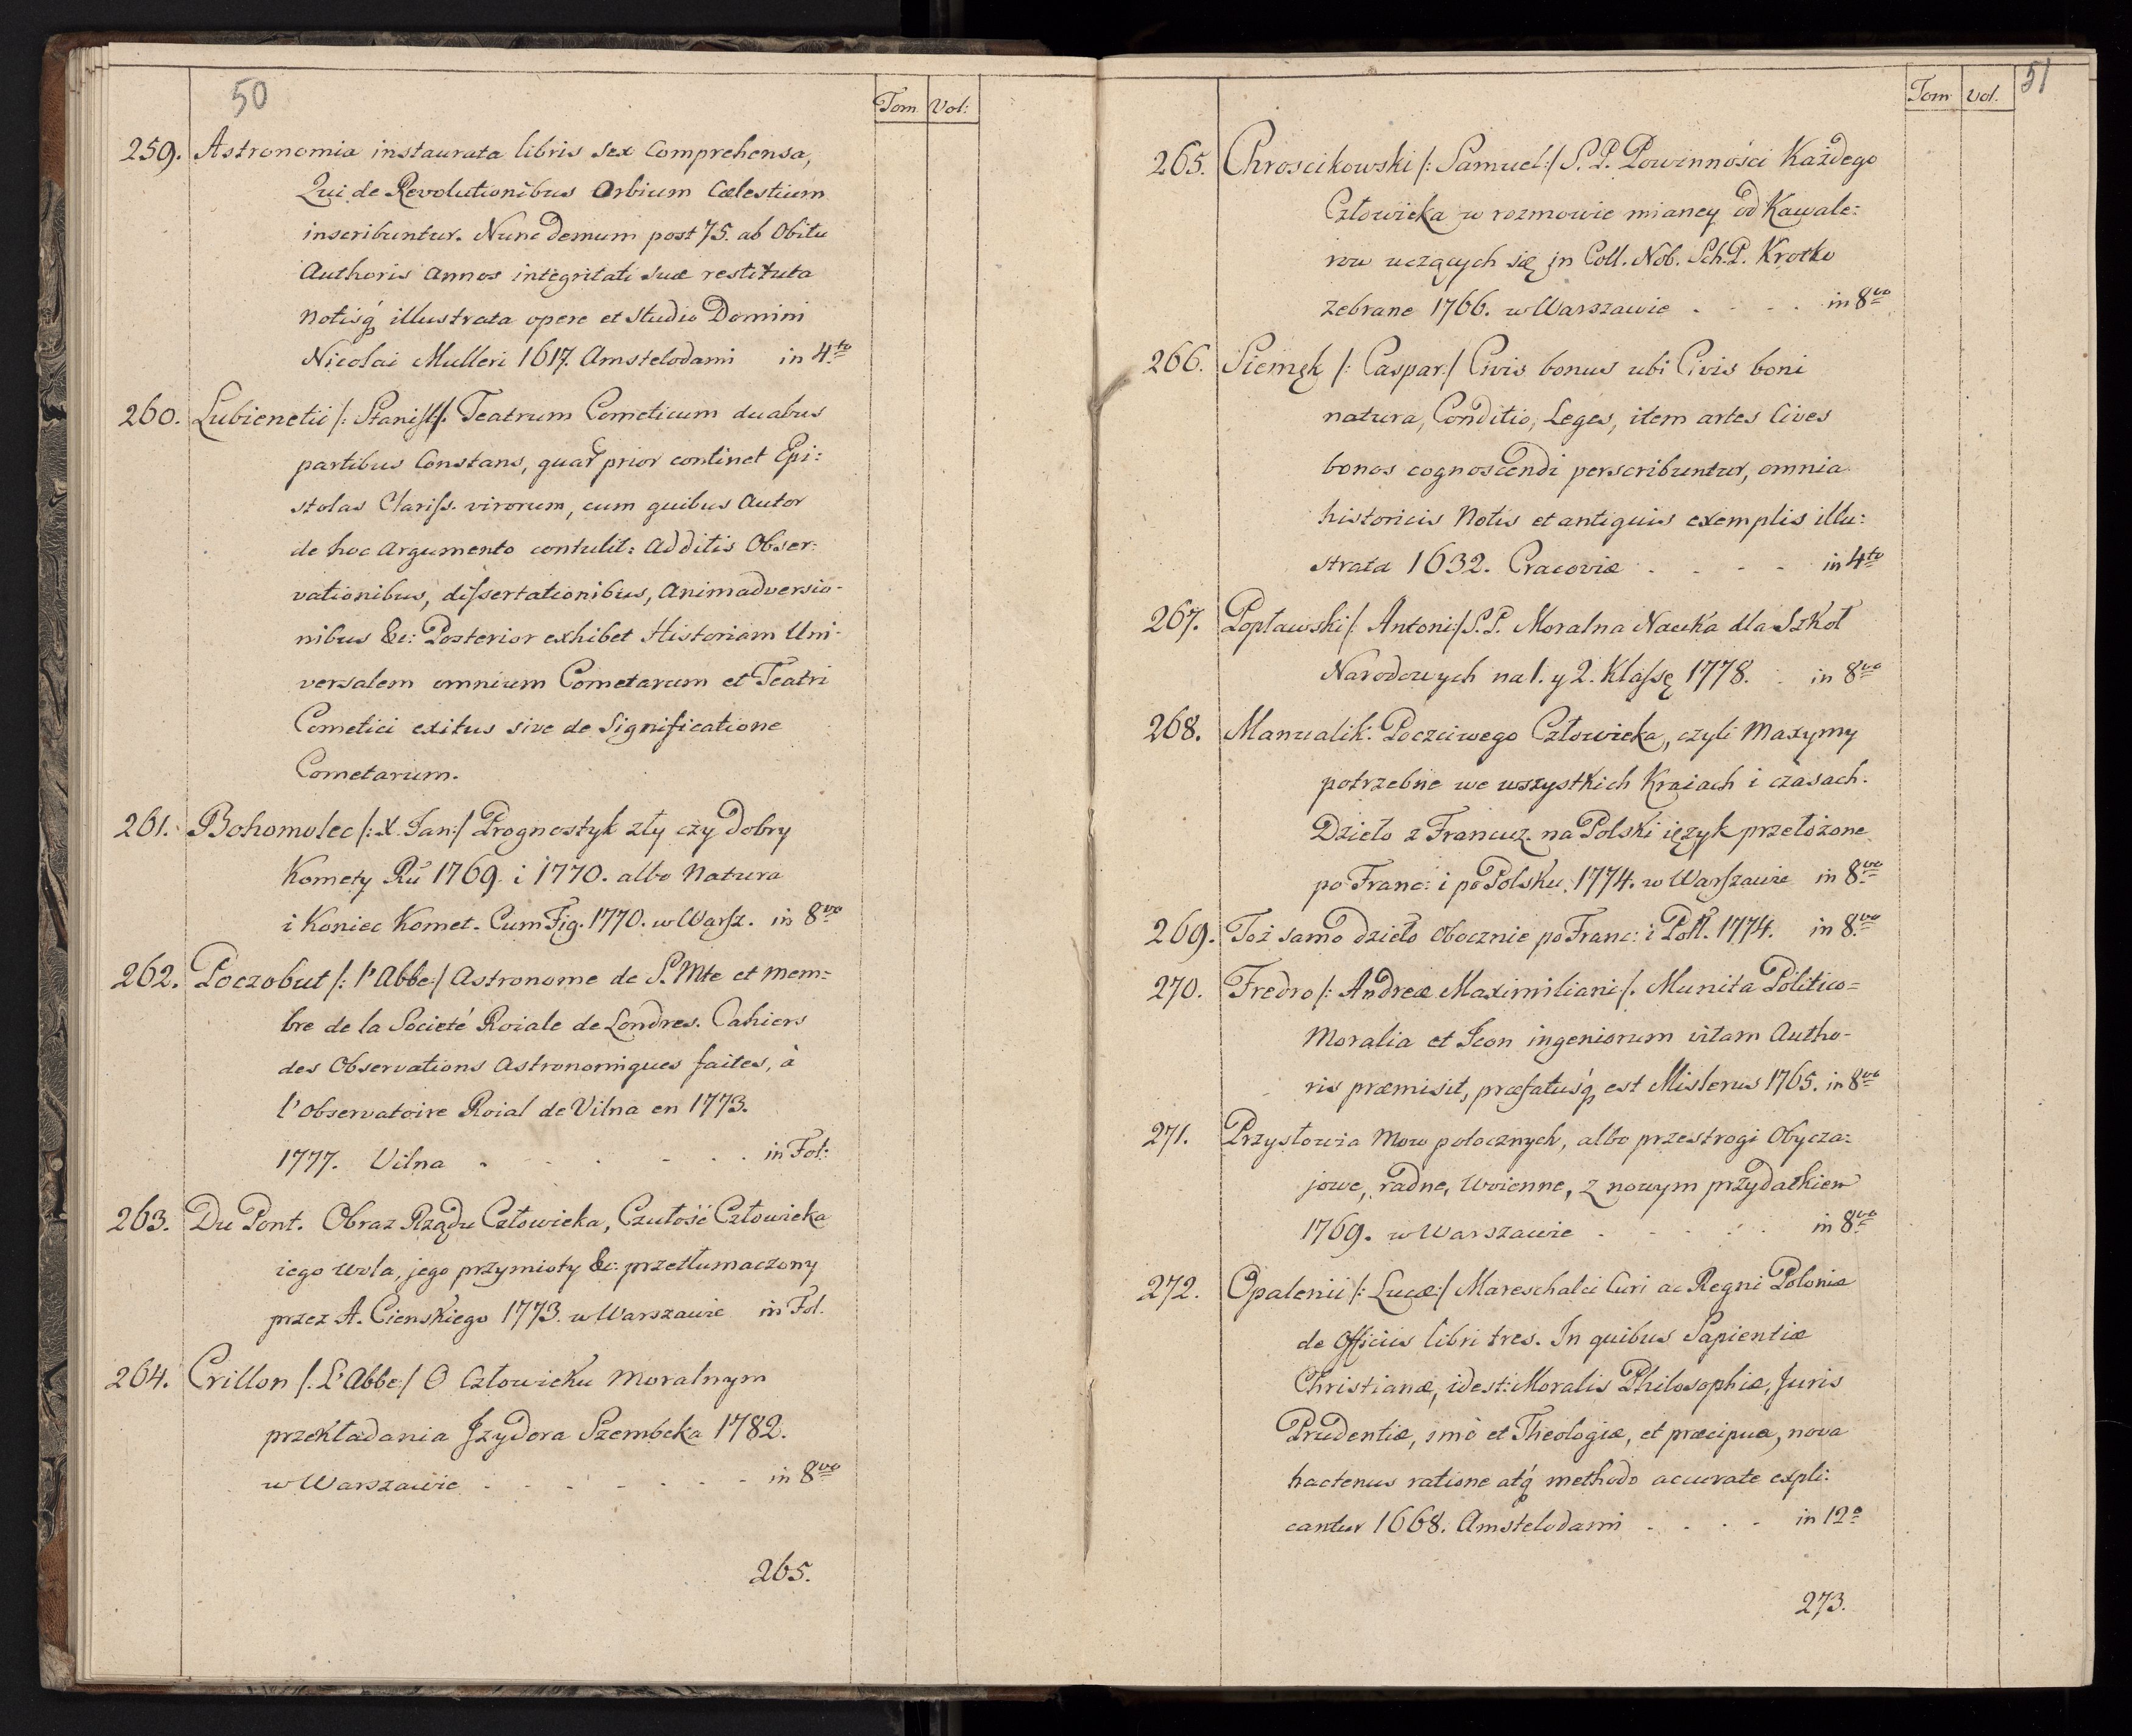 50
Tom Vol:
259. Astronomia instaurata libris sex Comprehensa,
Qui de Revolutionibus Orbium Cælestium
inscribuntur. Nunc Demum post 75. ab Obitu
Authoris Annos integritati suæ restituta
Notisq́ illustrata opere et Studio Domini
Nicolai Mulleri 1617. Amstelodami in 4to
260. Lubienetii /: Stanisł:/ Teatrum Cometicum duabus
partibus Constans, quar̃ prior continet Epi:
stolas Clariss. virorum, cum quibus Autor
de hoc Argumento contulit: Additis Obser:
vationibus, dissertationibus, Animadversio-
nibus &c: Posterior exhibet Historiam Uni-
versalem omnium Cometarum et Teatri
Cometici exitus sive de Significatione
Cometarum.
261. Bohomolec /: X. Jan:/ Prognostyk zły czy Dobry
Komety Rũ 1769 i 1770. albo Natura
i Koniec Komet. Cum Fig. 1770. w Warsz. in 8vo
262. Poczobut /: l'Abbe:/ Astronome de S. Mte et mem=
bre de la Societé Roiale de Londres. Cahiers
des Observations Astronomiques faites, à
l'Observatoire Roial de Vilna en 1773.
1777. Vilna . - . - . in Fol:
263. Du Pont. Obraz Rządu Człowieka, Czułość Człowieka
iego wola, jego przymioty &c: przetłumaczony
przez A. Cienskiego 1773. w Warszawie in Fol.
264. Crillon /: L'Abbe:/ O Człowieku Moralnym
przekładania Jzydora Szembeka 1782.
w Warszawie . - . - . - in 8vo
265.
51
Tom Vol.
265. Chroscikowski /: Samuel:/ S. P. Powinności Każdego
Człowieka w rozmowie mianey od Kawale:
row uczących się jn Coll. Nob. Sch. P. Krotko
zebrane 1766. w Warszawie . - - . in 8vo
266. Siemęk /: Caspar:/ Civis bonus ubi Civis boni
natura, Conditio, Leges, item artes Cives
bonos cognoscendi perscribuntur, omnia
historicis Notis et antiquis exemplis illu:
strata 1632. Cracoviæ . - - - in 4to
267. Popławski /: Antoni:/ S. P. Moralna Nauka dla Szkoł
Narodowych na 1. y 2. Klassę 1778. . in 8vo
268. Manualik Poczciwego Człowieka, czyli Maxymy
potrzebne we wszystkich Kraiach i czasach.
Dzieło z Francuz. na Polski ięzyk przełożone
po Franc: i po Polsku. 1774. w Warszawie in 8vo
269. Toż samo dzieło Obocznie po Franc: i Poll. 1774. in 8vo
270. Fredro /: Andreæ Maximiliani:/. Munita Politico=
Moralia et Icon ingeniorum vitam Autho-
ris præmisit, præfatusq́ est Mislerus 1765. in 8vo
271. Przysłowia Mow potocznych, albo przestrogi Obycza:
jowe, radne, Woienne, z nowym przydatkiem
1769. w Warszawie . - - . in 8vo
272. Opalenii /: Lucæ:/ Mareschalci Curi ac Regni Poloniæ
de Officiis libri tres. In quibus Sapientiæ
Christianæ, idest: Moralis Philosophiæ, Juris
Prudentiæ, imò et Theologiæ, et præcipua, nova
hactenus ratione atq́ methodo accurate expli:
cantur 1668. Amstelodami . . . - in 12o
273.